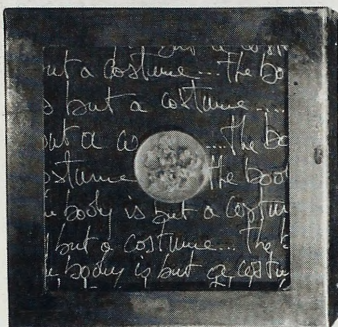 but a costu
but a costume... The bo
s but a costume....
but a co ...The bo
ostume The bod
body is but a costum
but a costume... The b
body is but a costum